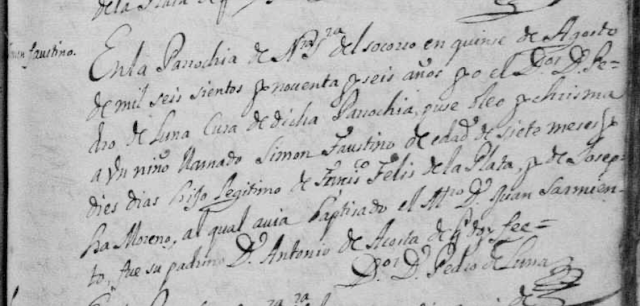 de la Plata
Juan faustino.
En la Parrochia de Nrã Srã del socorro en quinse de Agosto
de mil seis sientos y noventa y seis años yo el Dor Dn Pe=
dro de Luna Cura de dicha Parrochia, puse oleo y chrisma
a Vn niño llamado Simon Faustino de edad de siete meses y
dies dias hijo legitimo de Franco Felis de la Plata, y de Josep-
ha Moreno, al qual auia baptisado el Mro Dn Juan Sarmien-
to, fue su padrino Dn Antonio de Acosta de q doy fee=
Dor Dn Pedro de Luna